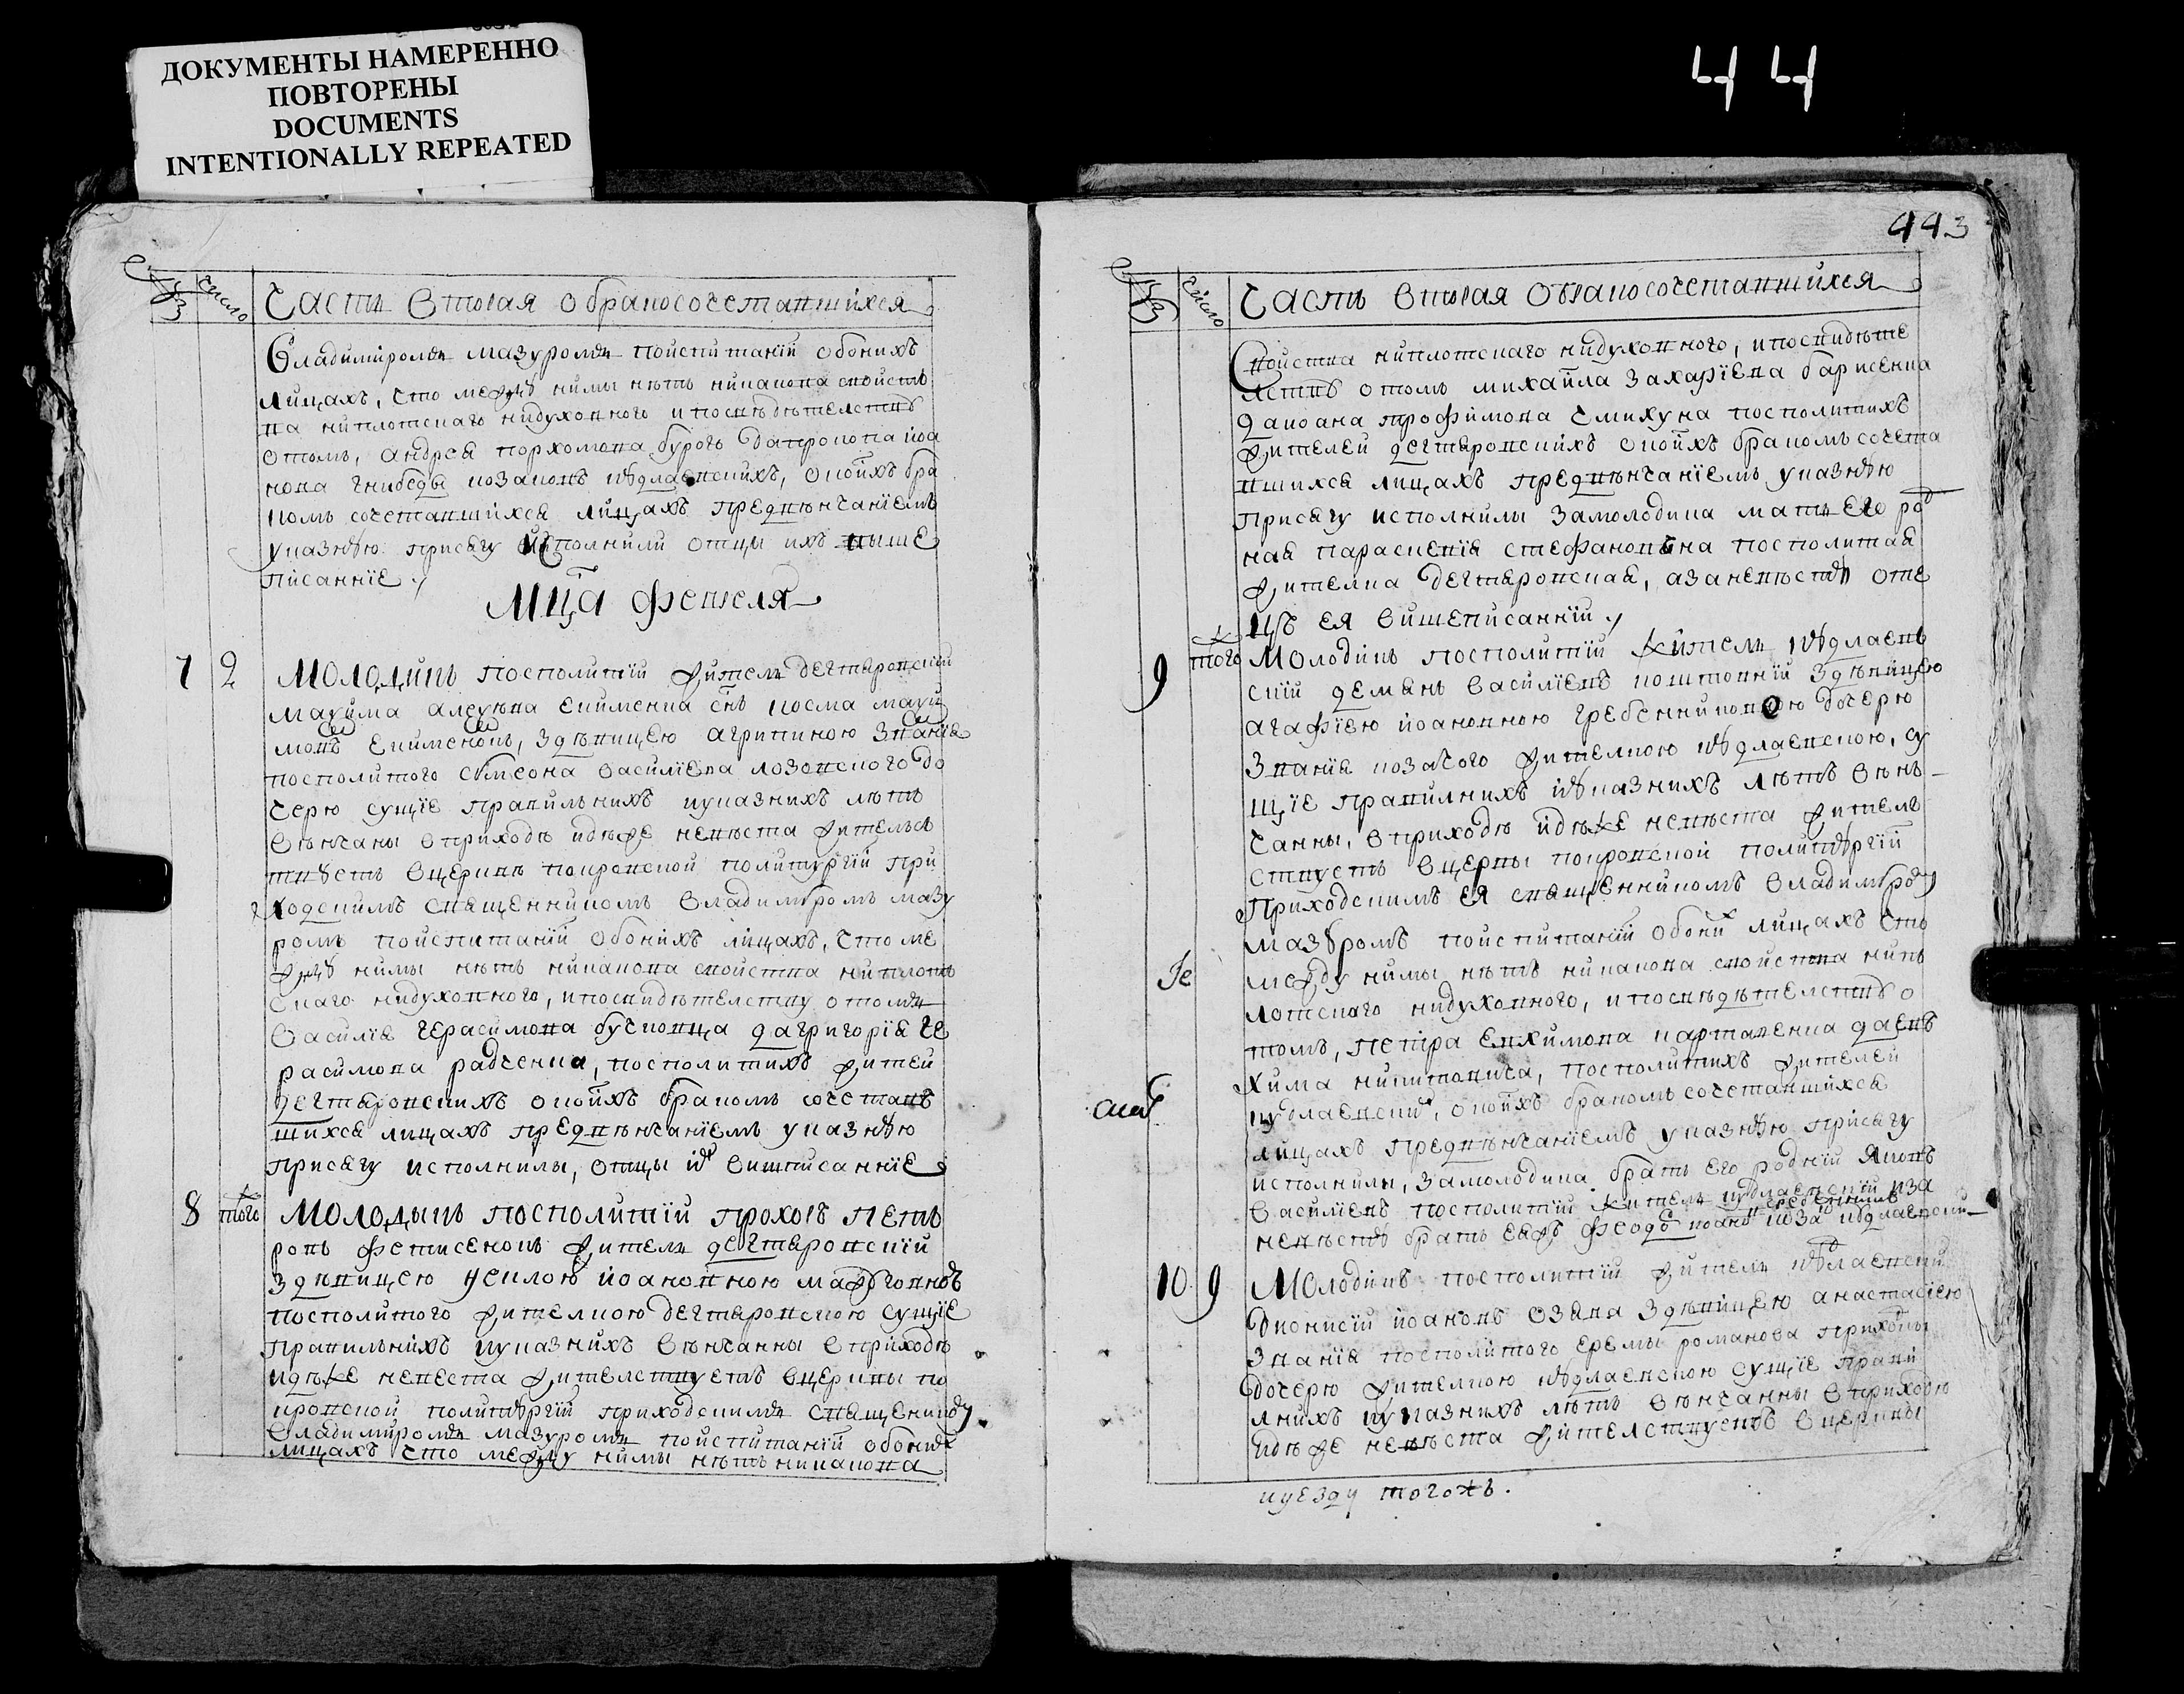 ДОКУМЕНТЫ НАМЕРЕННО
ПОВТОРЕНЫ
DOCUMENTS
INTENTIONALLY REPEATED
44
443
число
Часть Вторая о бракосочетавшихся
Владимиромъ мазуромъ поиспитаніи обоихъ
лицахъ, что между нимы нѣтъ никакова свойств
ва ниплотскаго нидуховного ипосвѣдѣтелству
отомъ, андрея порхомова бурого дапрокопа іоа
нова гнибеды козаковъ кудлаевскихъ, окоихъ бра
комъ сочетавшихся лицахъ предвѣнчаніемъ
указную присягу исполнили отцы ихъ выше
писанніе
Мца февраля
7 2 Молодикъ посполитій житель дегтяровскій
максима алексѣева екименка снъ косма макси
мовъ екименковъ, здѣвицею агрипиною званія
посполитого симеона василіева лозовского до
черю сущіе правильнихъ иуказнихъ лѣтъ
вѣнчаны вприходѣ идѣже невѣста жительс
твуетъ вцеркве покровской политургіи при
ходскимъ священникомъ владимиромъ мазу
ромъ поиспитаніи обоихъ лицахъ, что ме
жду нимы нѣтъ никакова свойства ниплот
скаго нидуховного, ипосвидѣтелству отомъ
василія герасимова бутковца дагригорія ге
расимова радченка, посполитихъ жител
дегтяровскихъ окоихъ бракомъ сочетавъ
шихся лицахъ предвѣнчаніемъ указную
присягу исполнилы, отцы их вишписанніе
8 того Молодыкъ посполитій прохоръ пет
ровъ фетисековъ житель дегтяровскій
здѣвицею уеклою іоановною мажуговною
посполитого жителкою дегтяровскою сущіе
правильнихъ иуказнихъ вѣнчанны вприходѣ
идѣже невеста жителствуетъ вцеркви по
кровской политургіи приходскимъ священико
владимиромъ мазуромъ поиспитаніи обоих
лицахъ что между нимы нѣтъ никакова
число
Часть Вторая Обракосочетавшихся
Свойства ниплотскаго нидуховного, ипосвидѣте
лству отомъ михайла захаріева барисенка
даиоана трофимова смикуна посполитихъ
жителей дегтяровскихъ окоихъ бракомъ сочета
вшихся лицахъ предвѣнчаніемъ указную
присягу исполнилы замолодика мать его род
ная параскевія стефановъна посполитая
жителка дегтяровская, азаневѣсту оте
цъ ея вишеписанній
9 того Молодикъ посполитій житель кудлаевъ
скій демянъ василіевъ коштовній здѣвицею
агафіею іоановною гребенниковою дочерю
званія козачого жителкою кудлаевскою, су
щіе правилнихъ иуказнихъ лѣтъ вѣнъ
чанны, вприходѣ идѣже невѣста жителъ
ствуетъ вцерквы покровской политургіи
приходскимъ ея священникомъ владимиро
мазуромъ поиспитаніи обоих лицахъ что
между нимы нѣтъ никакова свойства нипъ
лотскаго нидуховного, ипосвѣдѣтелству о
томъ, петра евхимова картавенка даевъ
хима никитовича, посполитихъ жителей
кудлаевских, окоихъ бракомъ сочетавшихся
лицахъ предвѣнчаніемъ указную присягу
исполнилы, замолодика братъ его родній яковъ
василіевъ посполитій житель кудлаевскій иза
невѣсту братъ еяж феодо иоано гребенникъ коза кудлаевский
10 9 Молодикъ посполитій житель кудлаевски
дионисій иоановъ озява здѣвицею анастасіею
званія посполитого еремы романова приходы
дочерю жителкою кудлаевскою сущіе прави
лнихъ иуказнихъ лѣтъ вѣнчанны вприходѣ
идѣже невѣста жителствуетъ вцерквы
иуезду тогожъ.